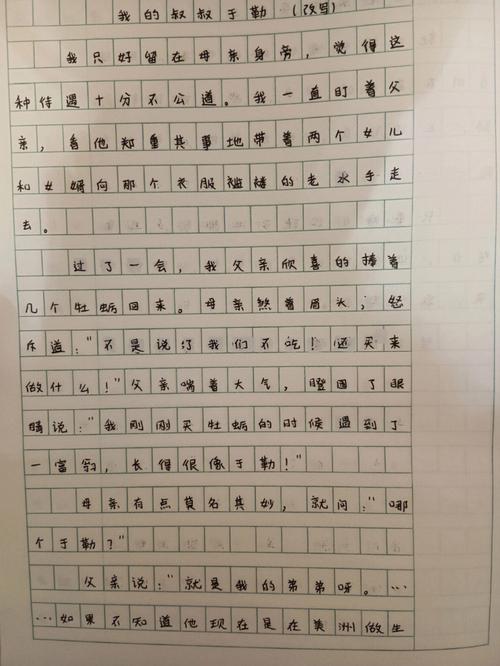 我的叔叔于勒（改写）
我只好留在母亲身旁，觉得这
种待遇十分不公道。我一直盯着父
亲，看他郑重其事地带着两个女儿
和女婿向那个衣服褴褛的老水手走
去。
过了一会，我父亲欣喜的捧着
几个牡蛎回来。母亲然着眉头，怒
斥道："不是说了我们不吃！还买来
做什么！"父亲喘着大气，瞪圆了眼
睛说："我刚刚买牡蛎的时候遇到了
一富翁，长得很像于勒！"
母亲有点莫名其妙，就问："哪
个于勒？"
父亲说："就是我的弟弟呀。…
…如果不知道他现在是在美洲做生